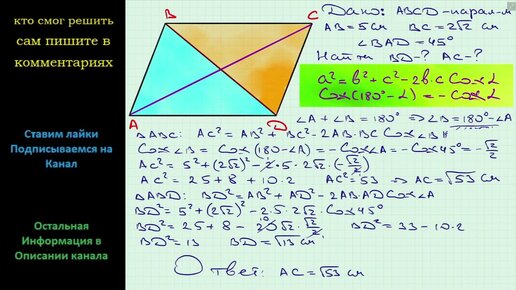 кто смог решить
сам пишите в
комментариях
Ставим лайки
Подписываемся на
Канал
Остальная
Информация в
Описании канала
B
C
A
D
Дано: ABCD-парал-м
AB=5см BC=2√2 см
∠BAD=45°
Найти BD-? AC-?
a²=b²+c²-2b·c Cos∠
Cos(180°-∠)=-Cos∠
∠A+∠B=180° ⇒ ∠B=180°-∠A
△ABC: AC²=AB²+BC²-2AB·BC Cos∠B
Cos∠B=Cos(180-∠A)=-Cos∠A=-Cos45°=-√2/2
AC²=5²+(2√2)²-2·5·2√2·(-√2/2)
AC²=25+8+10·2 AC²=53 ⇒ AC=√53 см
△ABD: BD²=AB²+AD²-2AB·AD Cos∠A
BD²=5²+(2√2)²-2·5·2√2·Cos45°
BD²=25+8-20√2·√2/2 BD²=33-10·2
BD²=13 BD=√13 см
Ответ: AC=√53 см